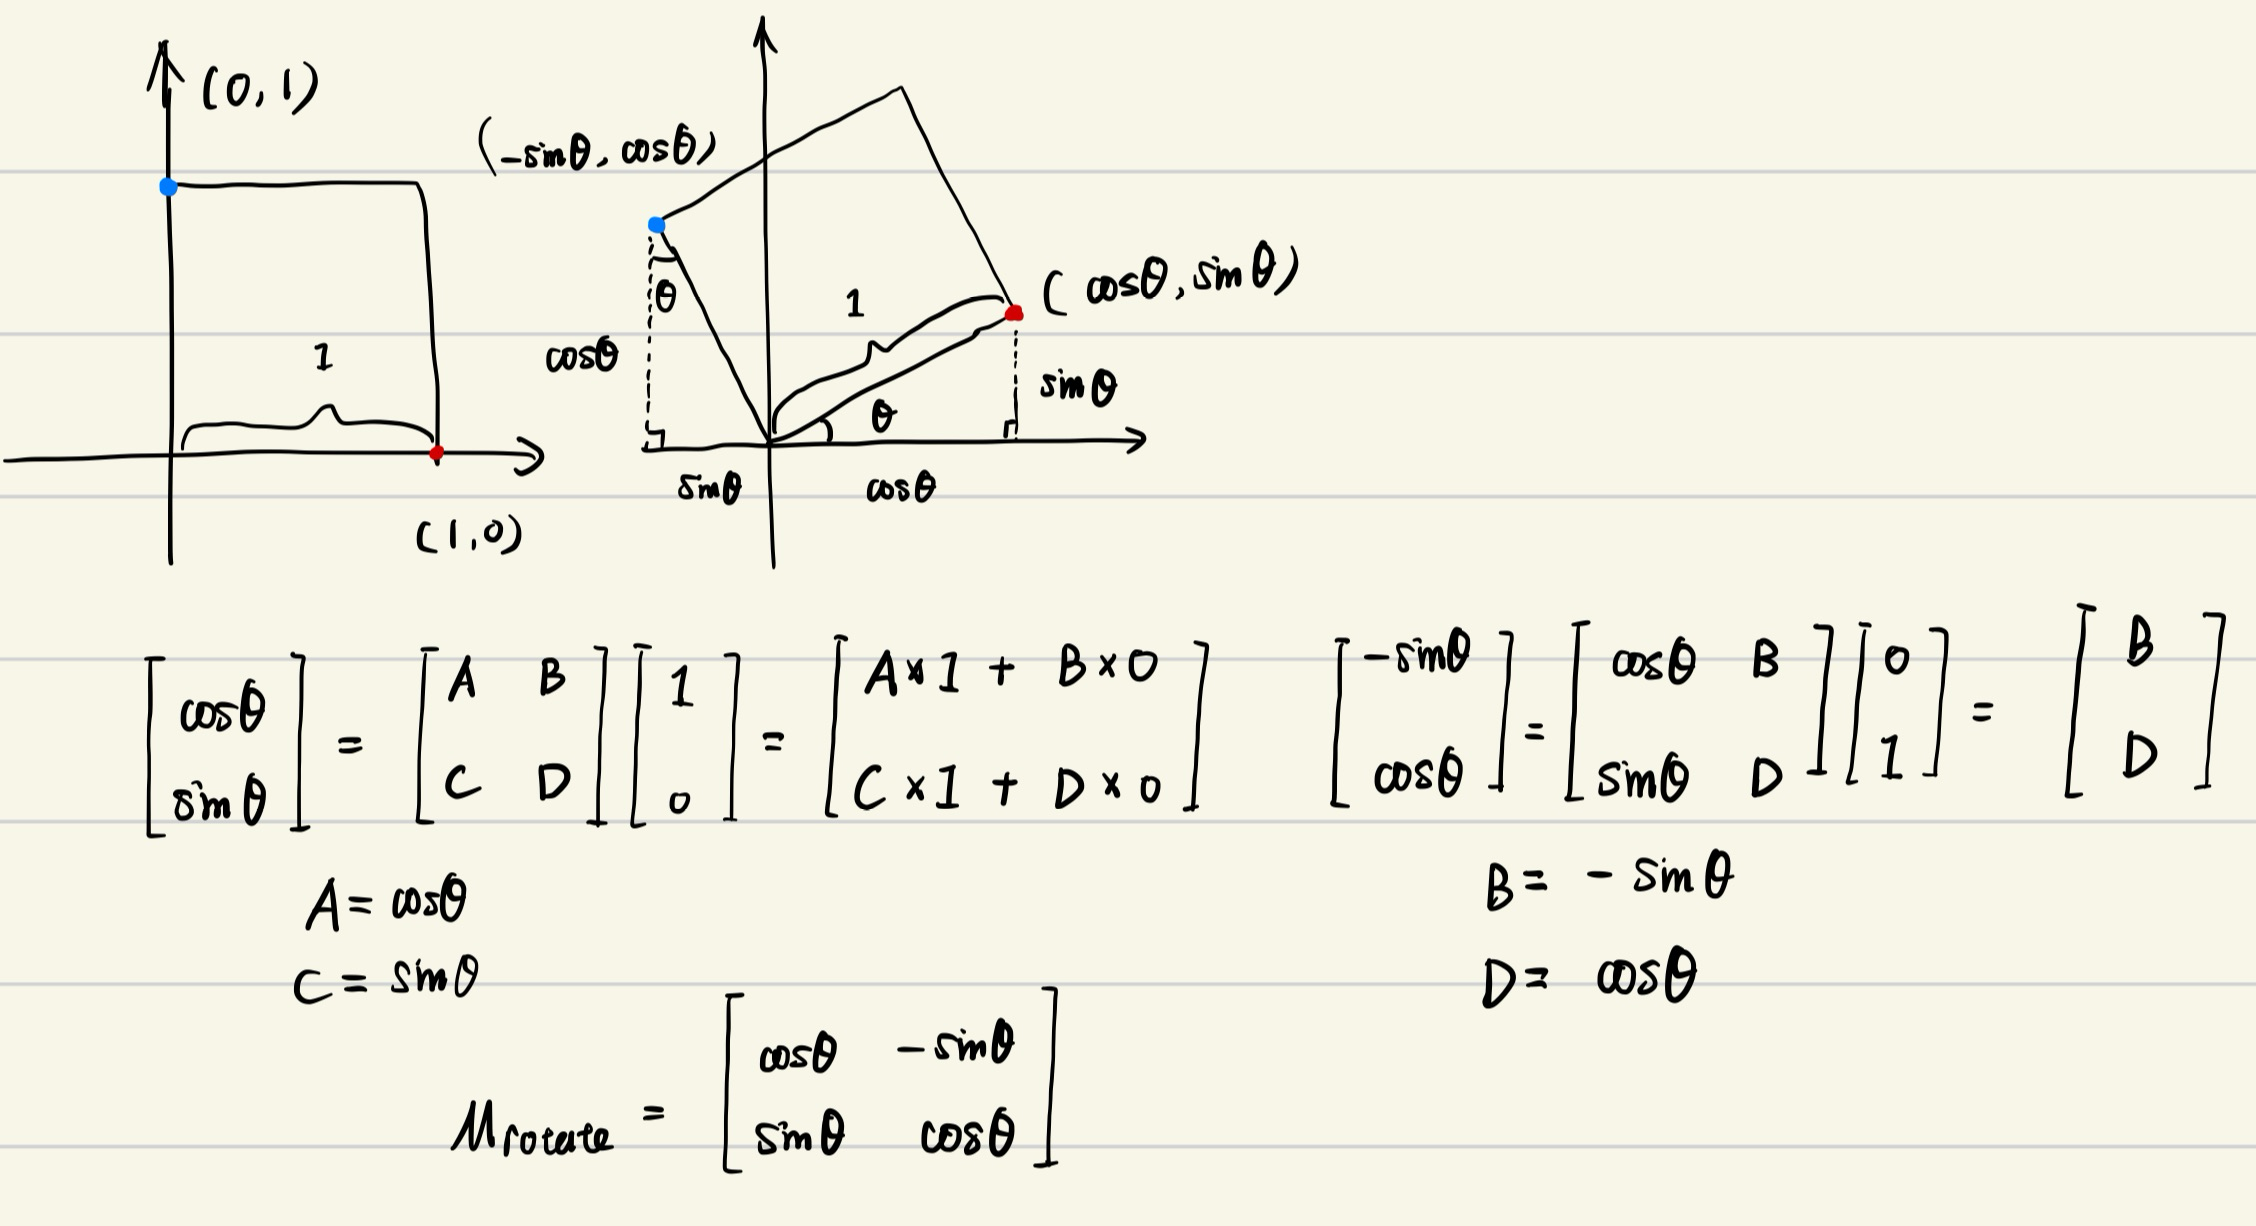 (0,1)
1
(1,0)
(-sinθ, cosθ)
θ
cosθ
1
(cosθ, sinθ)
θ
sinθ
sinθ
cosθ
[cosθ sinθ] = [A B C D] [1 0] = [A×1 + B×0 C×1 + D×0]
[-sinθ cosθ] = [cosθ B sinθ D] [0 1] = [B D]
A = cosθ
C = sinθ
B = -sinθ
D = cosθ
Mrotate = [cosθ -sinθ sinθ cosθ]